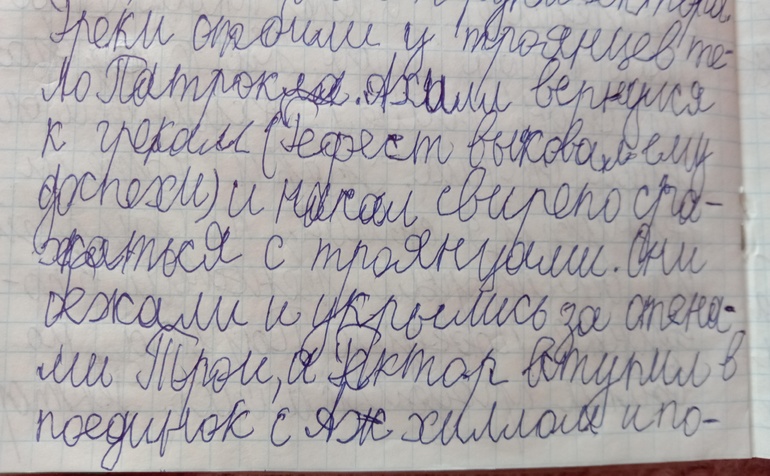 Гектора
Греки отбили у троянцев те-
ло Патрокла. Ахилл вернулся
к грекам (Гефест выковал ему
доспехи) и начал свирепо сра-
жаться с троянцами. Они
бежали и укрылись за стена-
ми Трои, а Гектор вступил в
поединок с Ахиллом и по-